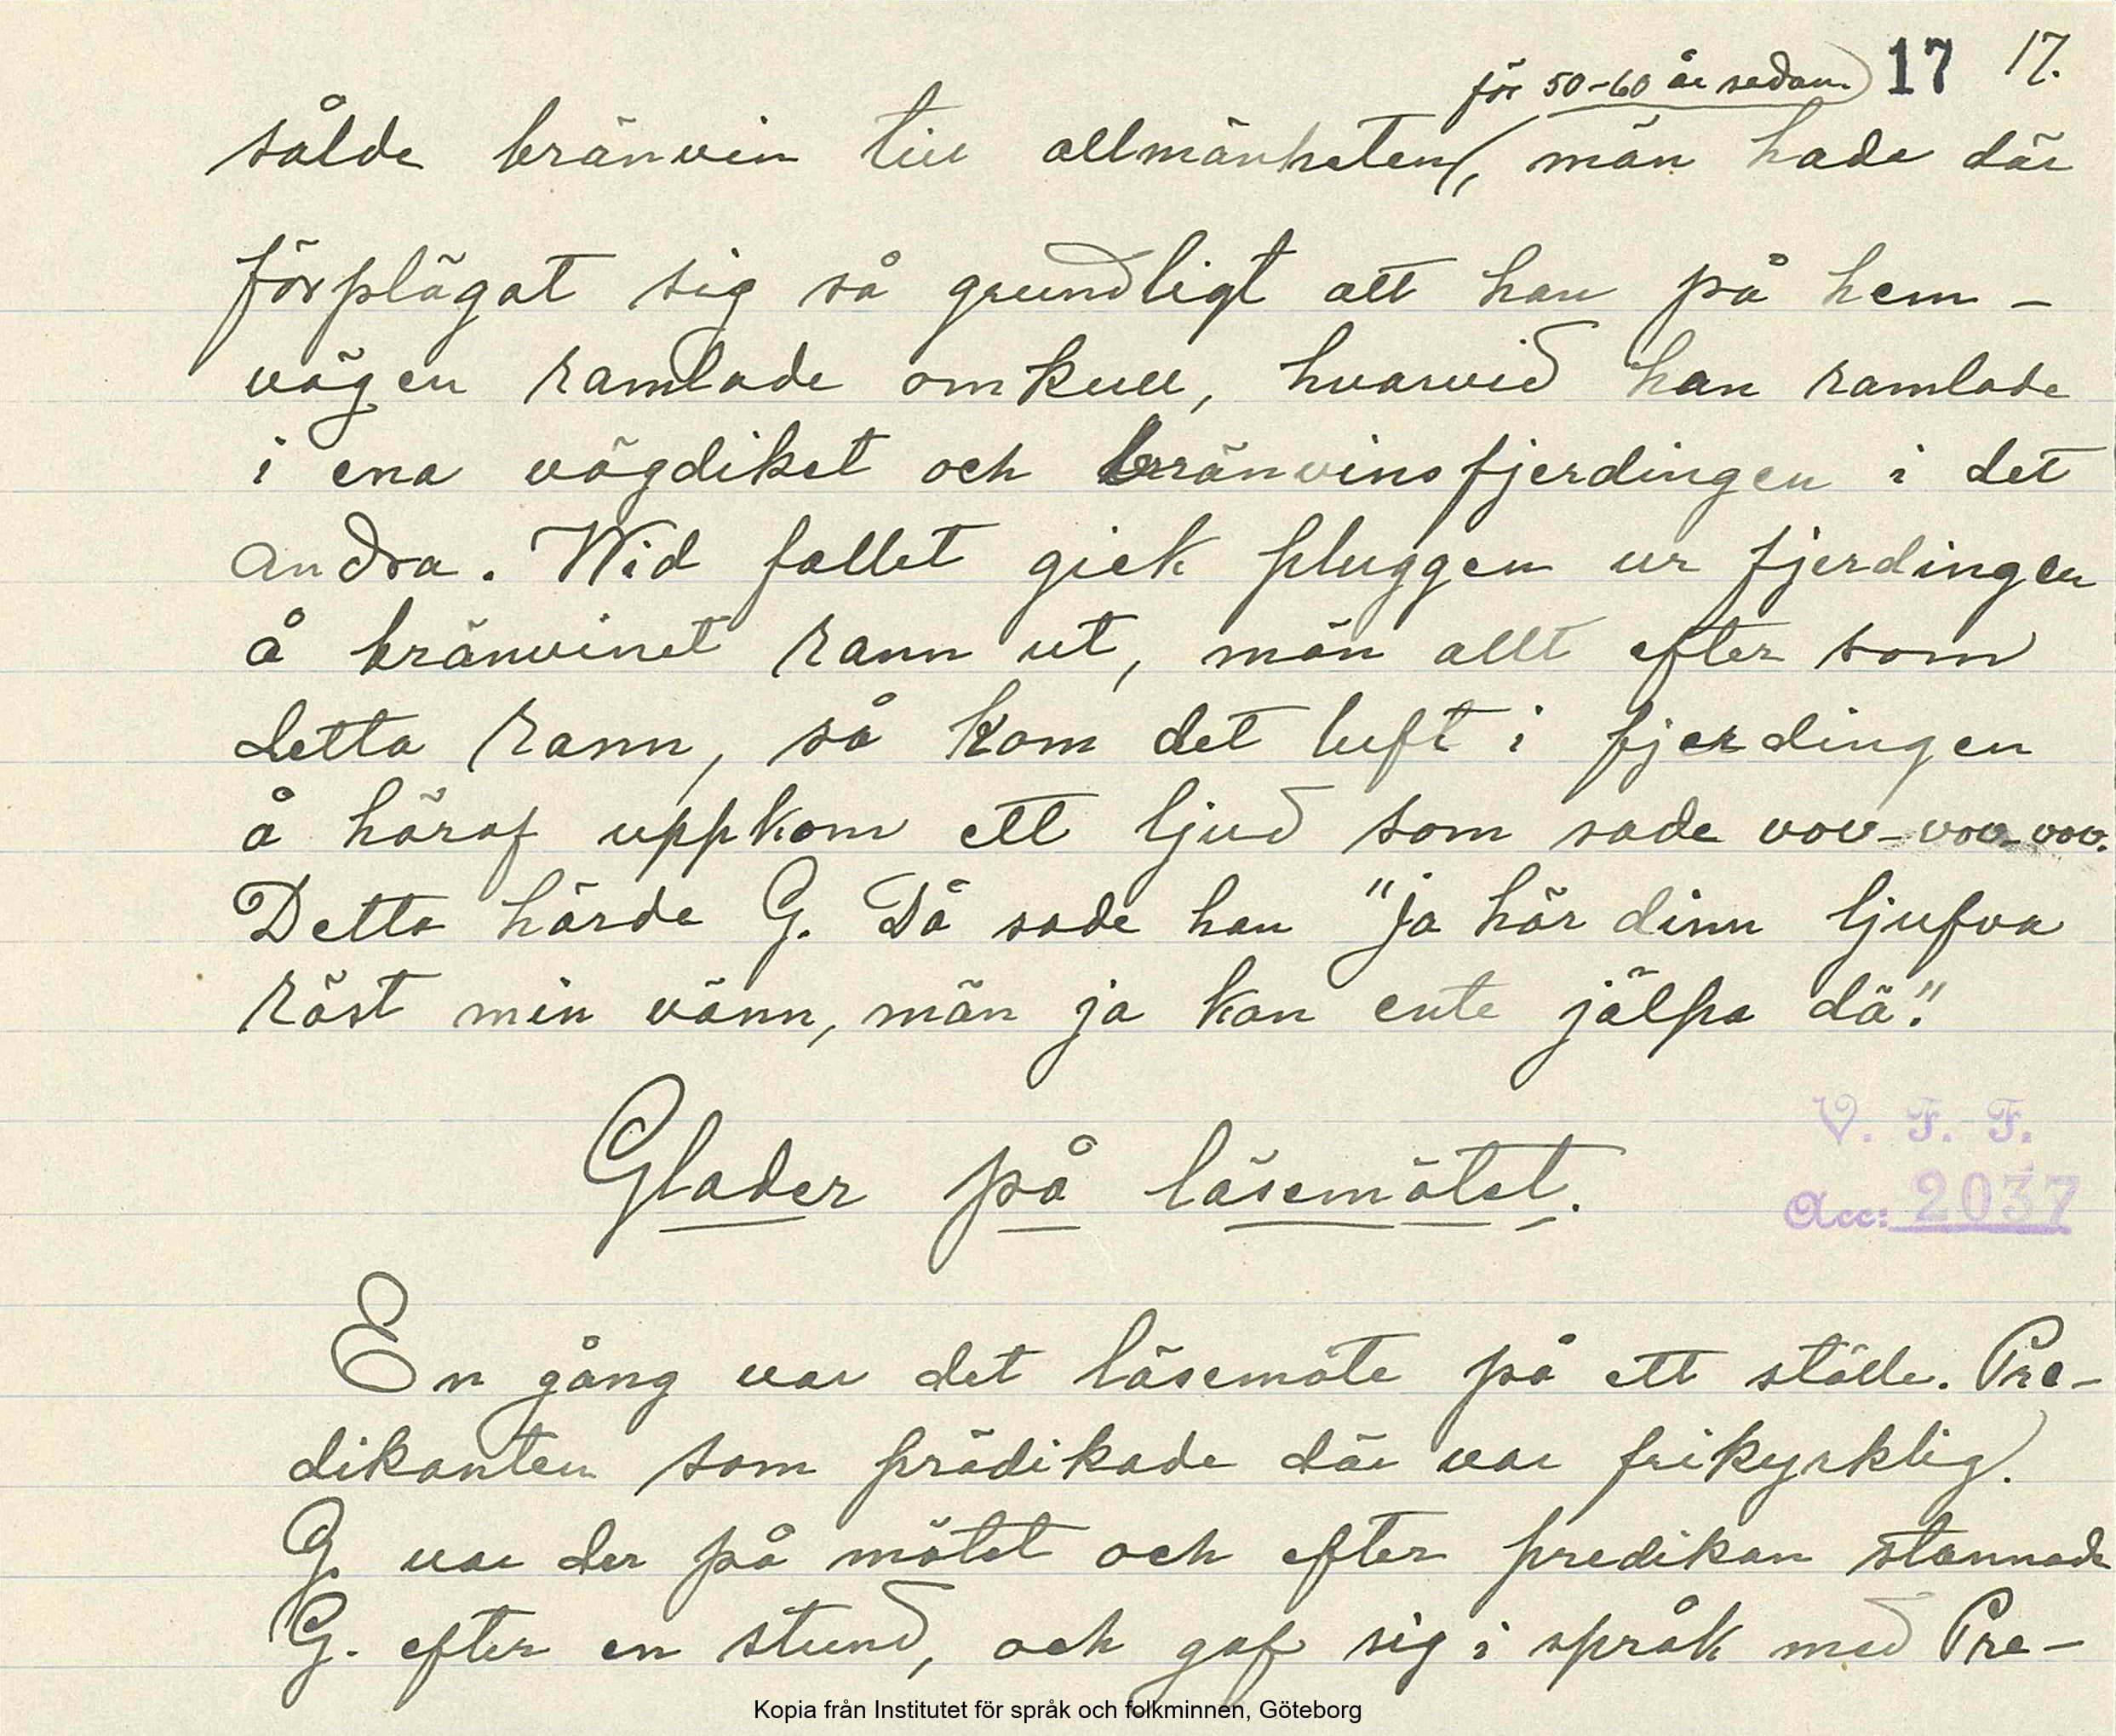 för 50-60 år sedan 17 17.
sålde bränvin till allmänheten, män hade där
förplägat sig så grundligt att han på hem-
vägen ramlade omkull, hvarvid han ramlade
i ena vägdiket och bränvinsfjerdingen i det
andra. Wid fallet gick pluggen ur fjerdingen
å bränvinet rann ut, män allt efter som
detta rann, så kom det luft i fjerdingen
å häraf uppkom ett ljud som sade vov-vov-vov.
Detta hörde G. Då sade han "ja hör dinn ljufva
röst min vänn, män ja kan ente jälpa dä".
Glader på läsemötet.
V. F. F.
Acc: 2037
En gång var det läsemöte på ett ställe. Pre-
dikanten som prädikade där var frikyrklig.
G. var der på mötet och efter predikan stannade
G. efter en stund, och gaf sig i språk med Pre-
Kopia från Institutet för språk och folkminnen, Göteborg